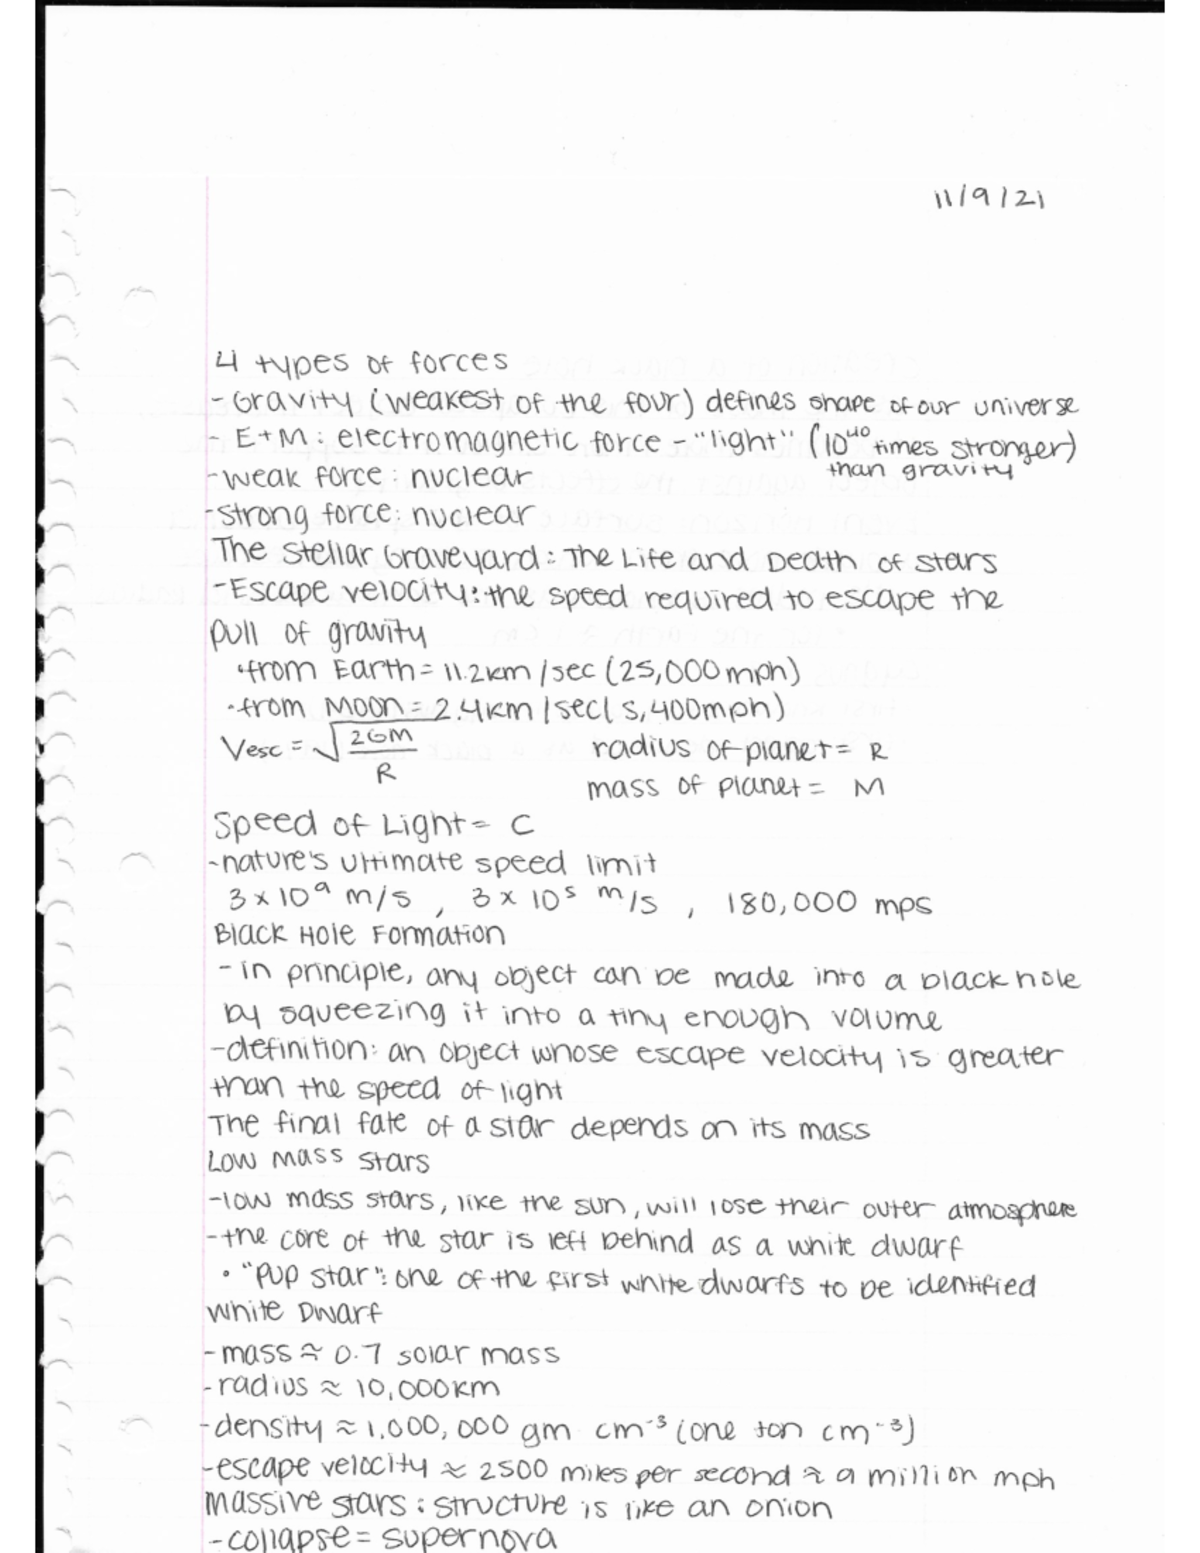 11/9/21
4 types of forces
- Gravity (weakest of the four) defines shape of our universe
- E+M: electromagnetic force - "light" (10⁴⁰ times stronger)
than gravity
- weak force: nuclear
- strong force: nuclear
The Stellar Graveyard: The Life and Death of Stars
- Escape velocity: the speed required to escape the
pull of gravity
• from Earth = 11.2km/sec (25,000mph)
• from Moon = 2.4km/sec( 5,400mph)
Vesc = √2GM/R radius of planet = R
mass of planet = M
Speed of Light = C
- nature's ultimate speed limit
3 x 10⁹ m/s , 3 x 10⁵ m/s , 180,000 mps
Black Hole Formation
- in principle, any object can be made into a black hole
by squeezing it into a tiny enough volume
- definition: an object whose escape velocity is greater
than the speed of light
The final fate of a star depends on its mass
Low mass stars
- low mass stars, like the sun, will lose their outer atmosphere
- the core of the star is left behind as a white dwarf
• "Pup star": one of the first white dwarfs to be identified
White Dwarf
- mass ≈ 0.7 solar mass
- radius ≈ 10,000km
- density ≈ 1,000,000 gm cm⁻³ (one ton cm⁻³)
- escape velocity ≈ 2500 miles per second ≈ a million mph
Massive stars: structure is like an onion
- collapse = supernova